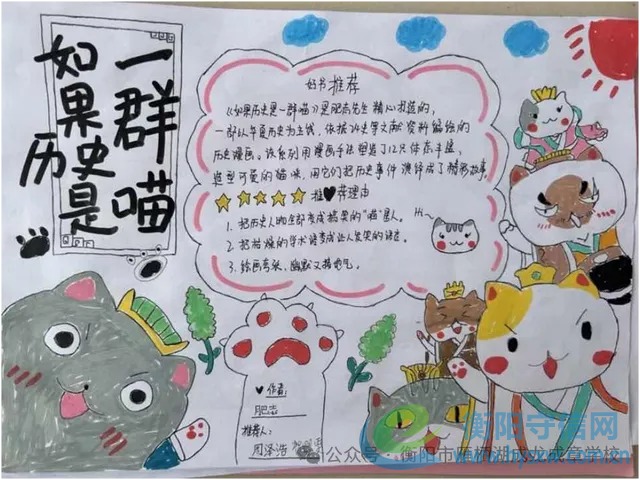 如果历史是
一群喵
好书推荐
《如果历史是一群喵》是肥志先生精心打造的,
一部以华夏历史为主线,依据许史学文献资料编绘的
历史漫画。该系列用漫画手法塑造了12只体态丰盈,
造型可爱的猫咪,用它们把历史事件演绎成了精彩故事
推♥荐理由
1. 把历史人物全部变成搞笑的“喵”星人。
2. 把枯燥的学术语变成让人发笑的语言。
3. 绘画音乐、幽默又接地气。
Hi~
♥作者
肥志
推荐人:
周泽浩
公众号·衡阳市
衡阳守信网
www.hyscw.com